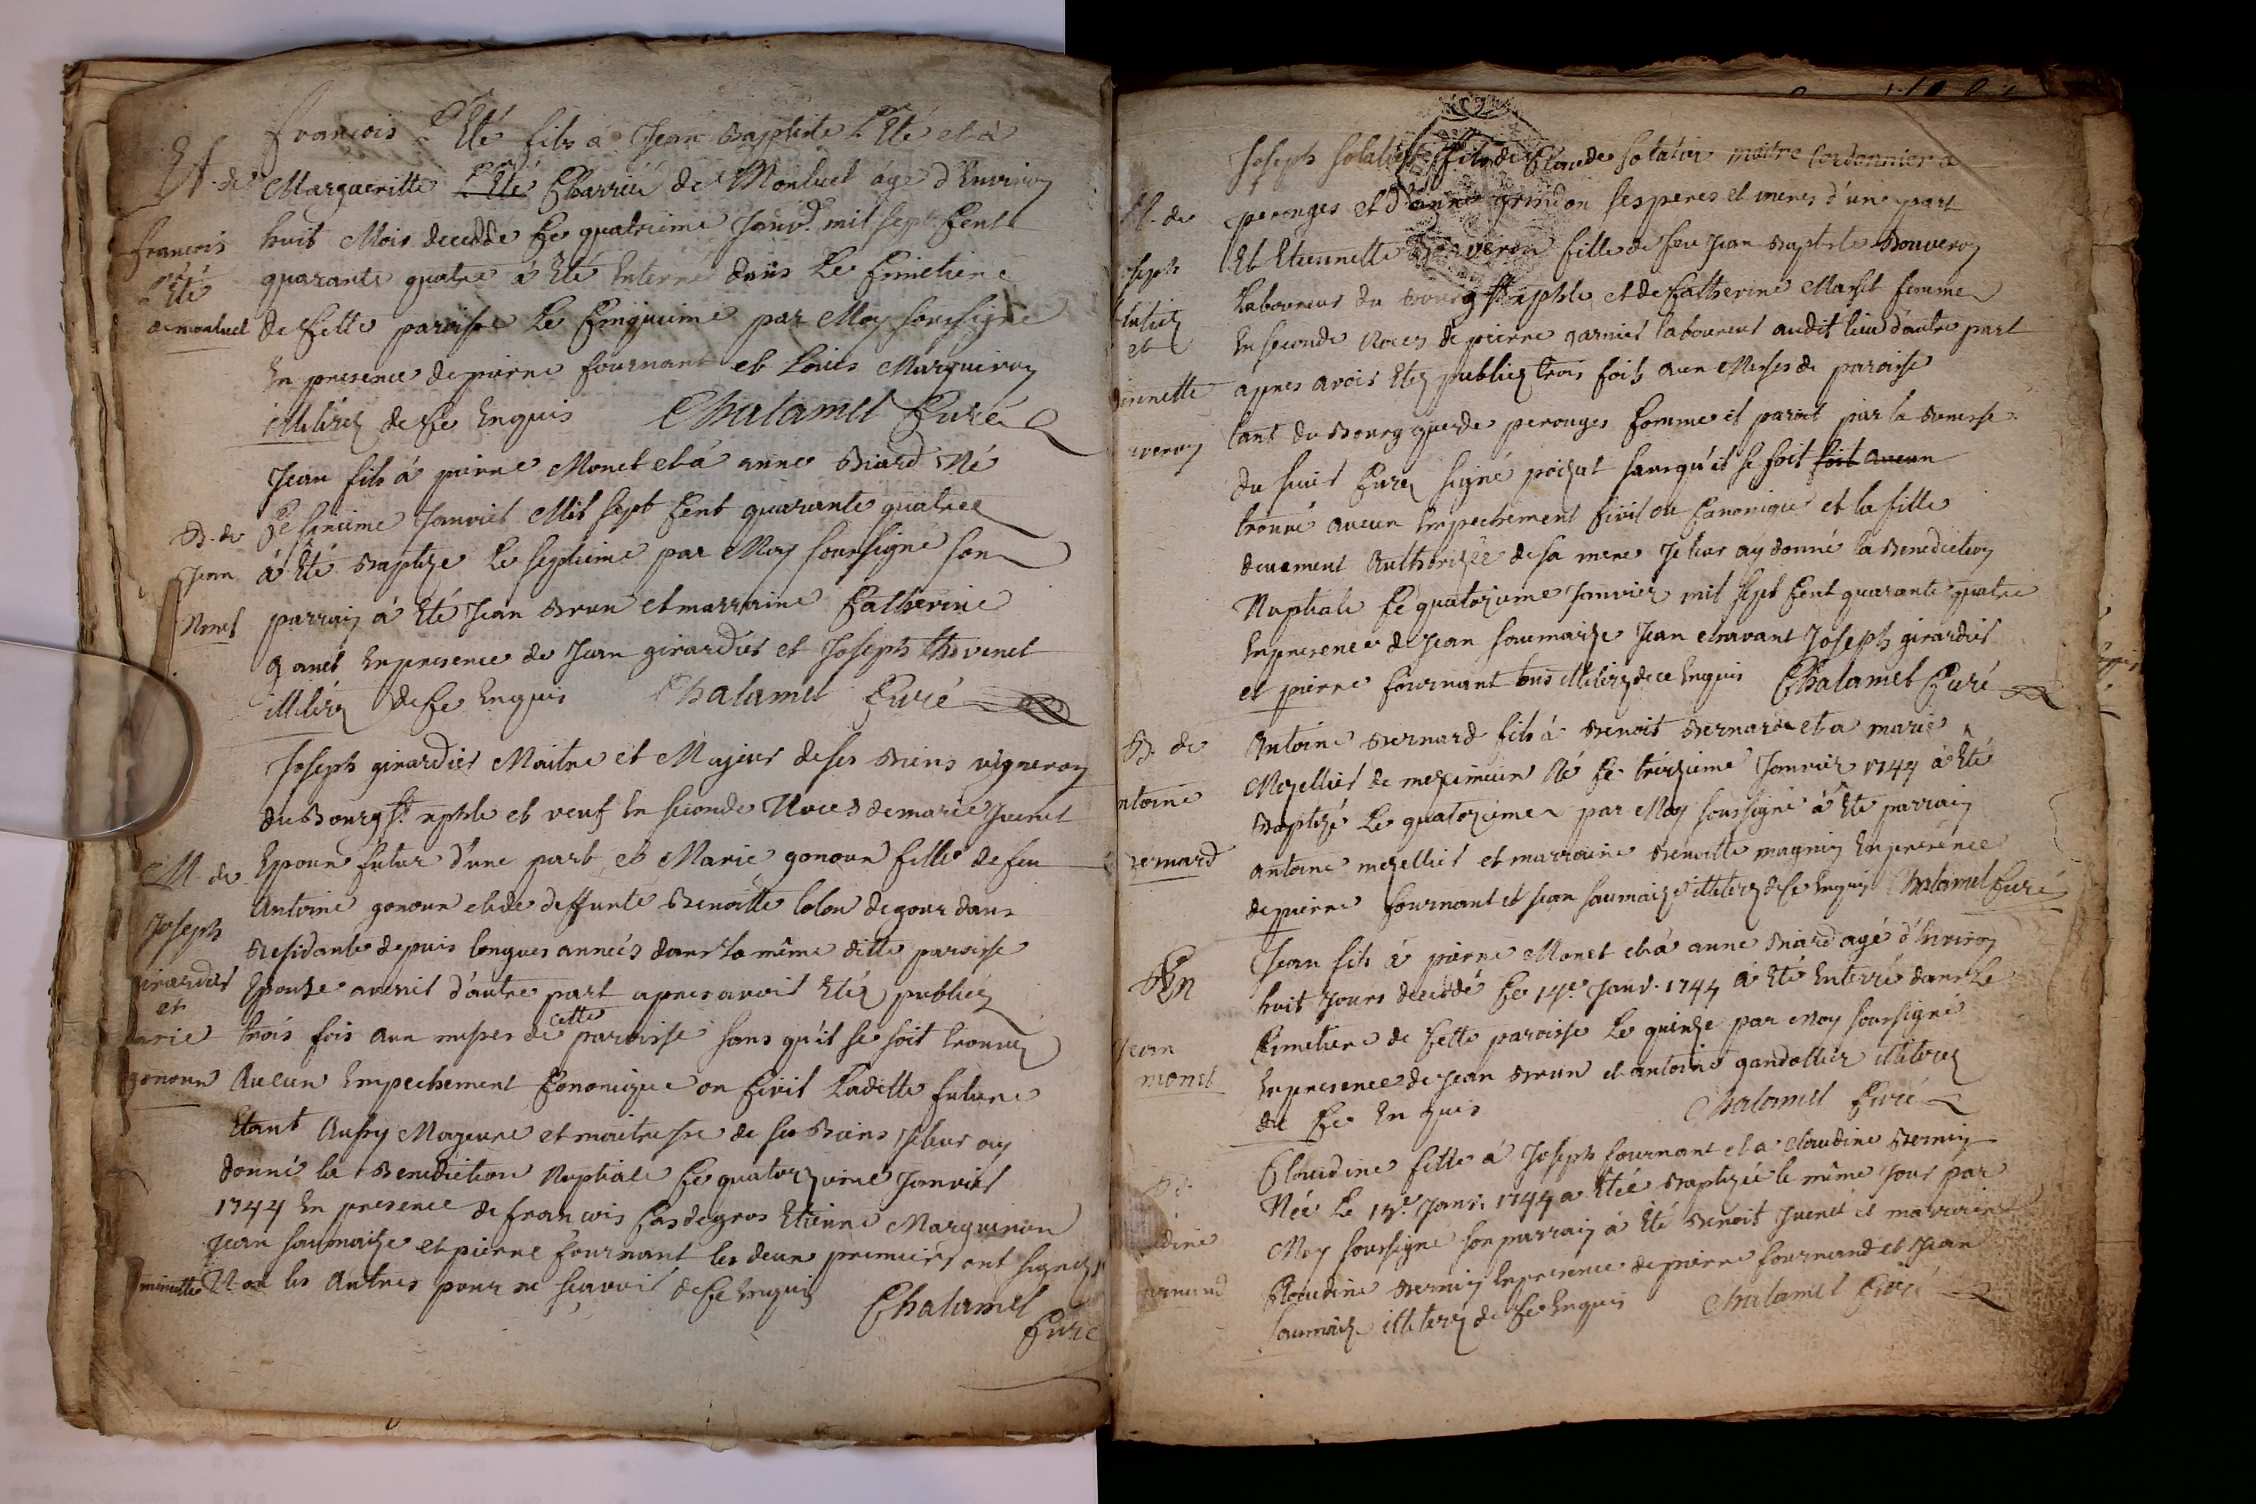 françois L'Eté fils à Jean Baptiste L'Eté et à
Et. de Margueritte L'Eté Charrié de Monluel agé d'Environ
françois huit Mois decedé Ce quatrieme Janv. mil sept Cent
L'Eté quarante quatre à Eté Enterré dans Le Cimetiere
de monluel de Cette paroisse Le Cinquieme par Moy soussigné
En presence de pierre fournant et Louis Margueron
illiterez de Ce Enquis Chalamel Curé
Jean fils à pierre Monet et à anne Biard Né
B. de Ce sixieme Janvier Mil sept Cent quarante quatre
Jean à Eté Baptize Le septieme par Moy soussigné son
Monet parrain à Eté Jean Brun et marraine Catherine
ganet En presence de Jean girardier et Joseph thevenet
illiterez de Ce Enquis Chalamel Curé
Joseph girardier Maitre et Majeur de ses Biens vigneron
du Bourg St. xphle et veuf En seconde Noces de marie Juenet
M. de Epoux futur d'une part et Marie gonoun fille de feu
Antoine gonoun et de deffunte Benoitte Colon de gourdans
Joseph Residante depuis longues années dans la même ditte paroisse
girardier Epouse avenir d'autre part apres avoir Etéz publiéz
et
marie trois fois aux messes de cette paroisse sans qu'il se soit trouvez
gonoun Aucun Empechement Canonique ou Civil Laditte future
Etant Aussy Mageure et maitresse de ses Biens Je leur ay
donné la Benediction Nuptiale Ce quatorzieme Janvier
1744 En presence de françois Casdegros Etienne Marguenon
Jean saumaize et pierre fournant les deux premiers ont signez
minutte Non les Autres pour ne sçavoir de Ce Enquis
Chalamel
Curé
Joseph Solatier fils de Claude Solatier maitre Cordonnier a
M. de perouges et d'anne grindon ses peres et meres d'une part
Joseph Et Etiennette Bouveron fille de feu Jean Baptiste Bouveron
Laboureur du Bourg St xphle et de Catherine Marset femme
et En seconde Noces de pierre garnier laboureur audit lieu d'autre part
apres avoir Etez publiez trois fois aux Messes de paroisse
tant du Bourg que de perouges Comme il paroit par la Remisse
du sieur Curez signé poizat sans qu'il se soit soit aucun
trouvé aucun Empechement Civil ou Canonique et la fille
deuement Authorizée de sa mere Je leur ay donné la Benediction
Nuptiale Ce quatorzieme Janvier mil sept Cent quarante quatre
En presence de Jean saumaize Jean chavant Joseph girardier
et pierre fournant tous illiterez de ce Enquis Chalamel Curé
B. de Antoine Bernard fils à Benoit Bernard et a marie
Mezellier de meximieux Né Ce treizieme Janvier 1744 à Eté
ntoine Baptizé Le quatorzieme par Moy soussigné à Eté parrain
ernard antoine mezellier et marraine Benoitte magnin En presence
de pierre fournant et Jean saumaize illiterez de Ce Enquis Chalamel Curé
Jean fils à pierre Monet et à anne Biard agé d'Environ
En huit Jours decedé Ce 14e Janv. 1744 à Eté Enterré dans Le
Jean Cimetiere de Cette paroisse Le quinze par Moy soussigné
monet En presence de Jean Brun et antoine gandollier illiterez
de Ce Enquis Chalamel Curé
Claudine fille à Joseph fournant et a claudine Bernin
Née Le 14e Janv. 1744 a Eteé Baptizeé le même Jour par
Moy soussigné son parrain à Eté Benoit Juenet et marraine
Claudine Bernin En presence de pierre fournand et Jean
saumaize illiterez de Ce Enquis Chalamel Curé